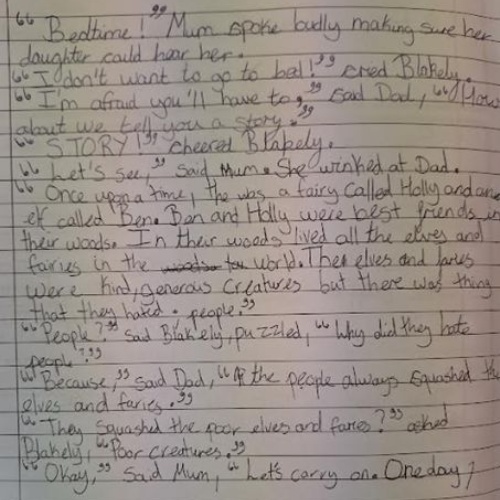 "Bedtime!" Mum spoke loudly making sure her
daughter could hear her.
"I don't want to go to bed!" cried Blakely.
"I'm afraid you'll have to," said Dad, "How
about we tell you a story."
"STORY!" cheered Blakely.
"Let's see," said Mum. She winked at Dad.
"Once upon a time, the was a fairy called Holly and an
elf called Ben. Ben and Holly were best friends in
their woods. In their woods lived all the elves and
fairies in the woods world. The elves and faries
were kind, generous creatures but there was thing
that they hated. people."
"People?" said Blakely, puzzled, "Why did they hate
people?"
"Because," said Dad, " the people always squashed the
elves and faries."
"They squashed the poor elves and faries?" asked
Blakely, "Poor creatures."
"Okay," said Mum, "Let's carry on. One day,